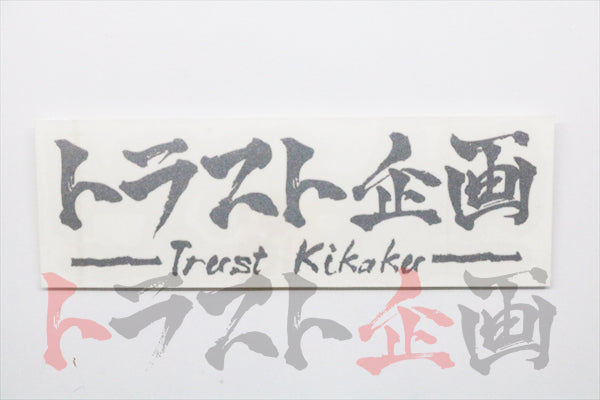 トラスト企画
Trust Kikaku
トラスト企画